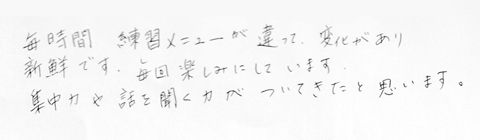 毎時間 練習メニューが違って、変化があり
新鮮です。毎回楽しみにしています。
集中力や話を聞く力がついてきたと思います。